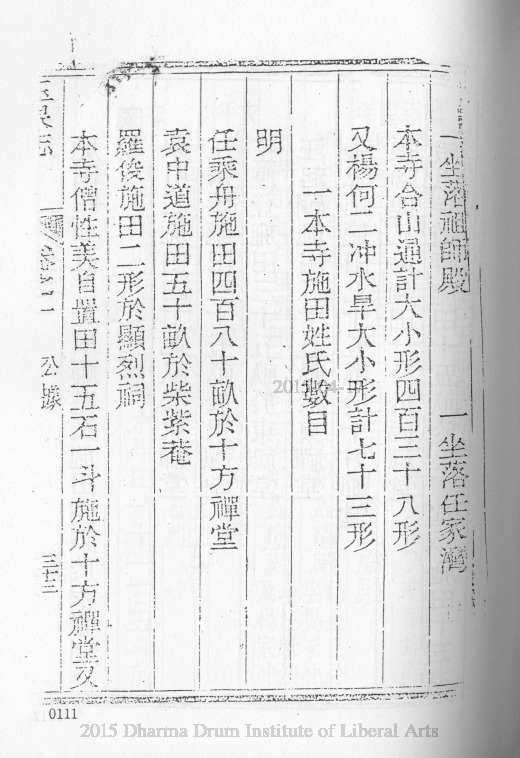 一坐落祖師殿 一坐落任家灣
本寺合山通計大小形四百三十八形
又楊何二冲水旱大小形計七十三形
一本寺施田姓氏數目
明
任乘舟施田四百八十畝於十方禪堂
袁中道施田五十畝於柴紫菴
羅俊施田二形於顯烈祠
本寺僧性美自置田十五石一斗施於十方禪堂又
玉泉志 卷之二 公據 三十二
0111
2015 Dharma Drum Institute of Liberal Arts